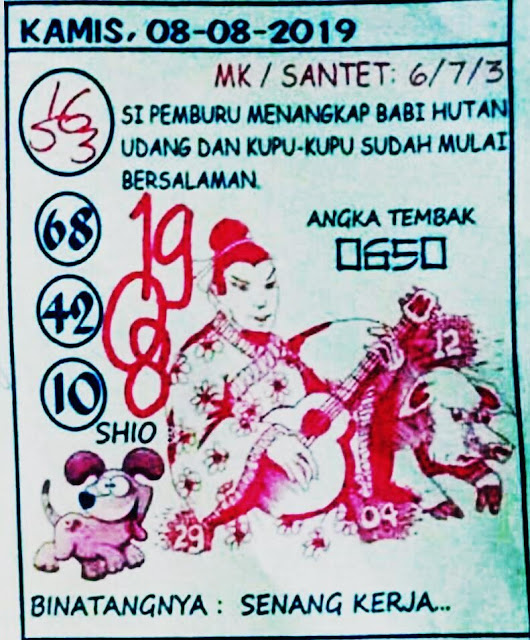 KAMIS, 08-08-2019
MK / SANTET: 6/7/3
SI PEMBURU MENANGKAP BABI HUTAN
UDANG DAN KUPU-KUPU SUDAH MULAI
BERSALAMAN.
16
53
68
42
10
19
08
ANGKA TEMBAK
0650
12
SHIO
29
04
BINATANGNYA : SENANG KERJA...